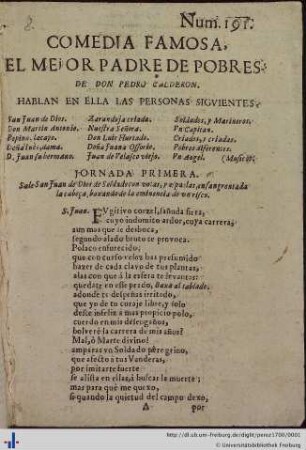 Num. 191.
COMEDIA FAMOSA,
EL MEJOR PADRE DE POBRES
DE DON PEDRO CALDERON.
HABLAN EN ELLA LAS PERSONAS SIGVIENTES.
San Juan de Dios. Zarandaja criada. Soldados, y Marineros.
Don Martin Antonio. Nuestra Señora. Vn Capitan.
Espino, lacayo. Don Luis Hurtado. Criados, y criadas.
Doña Luis, dama. Doña Juana Ossorio. Pobres diferentes.
D. Juan su hermano. Juan de Velasco viejo. Vn Angel. (Musica)
JORNADA PRIMERA.
Sale San Juan de Dios de Soldado con votas, y espuelas, ensangrentada
la cabeça,
S. Juan. FVgitivo corcel, sañuda fiera,
cuyo indomito ardor, cuya carrera,
aun mas que te desboca,
segundo alado bruto te provoca.
Polaco enfurecido;
que con curso veloz has pretendido
hazer de cada clavo de tus plantas,
alas con que á la esfera te levantas:
quedate en esse prado, Baxa al tablado.
adonde te despeñas irritado,
que yo de tu corage libre, y solo
deste infeliz á mas propicio polo,
cuerdo en mis desengaños,
bolveré la carrera de mis años?
Mal, ò Marte divino!
amparas vn Soldado peregrino,
que afecto à tus Vanderas,
por imitarte fuerte
se alista en ellas, á buscar la muerte;
mas para què me quexo,
si quando la quietud del campo dexo,
A por
http://dl.ub.uni-freiburg.de/diglit/perez1700/0001
© Universitätsbibliothek Freiburg